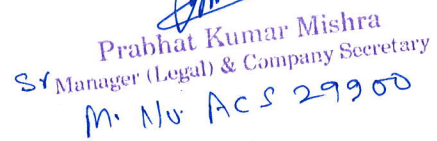 Prabhat Kumar Mishra
Sr Manager (Legal) & Company Secretary
M. No. ACS 29900